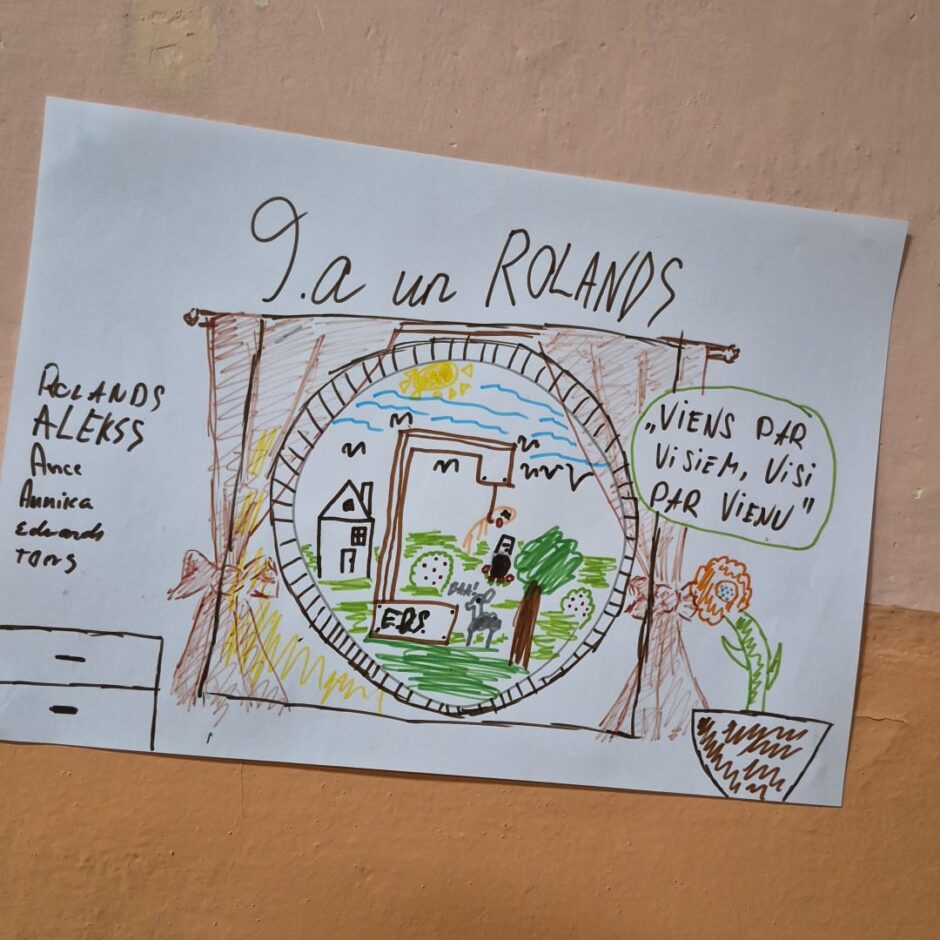 9.a un ROLANDS
ROLANDS
ALEKSS
Ance
Annika
Edvards
TOMS
„VIENS PAR
VISIEM, VISI
PAR VIENU”
BAA!